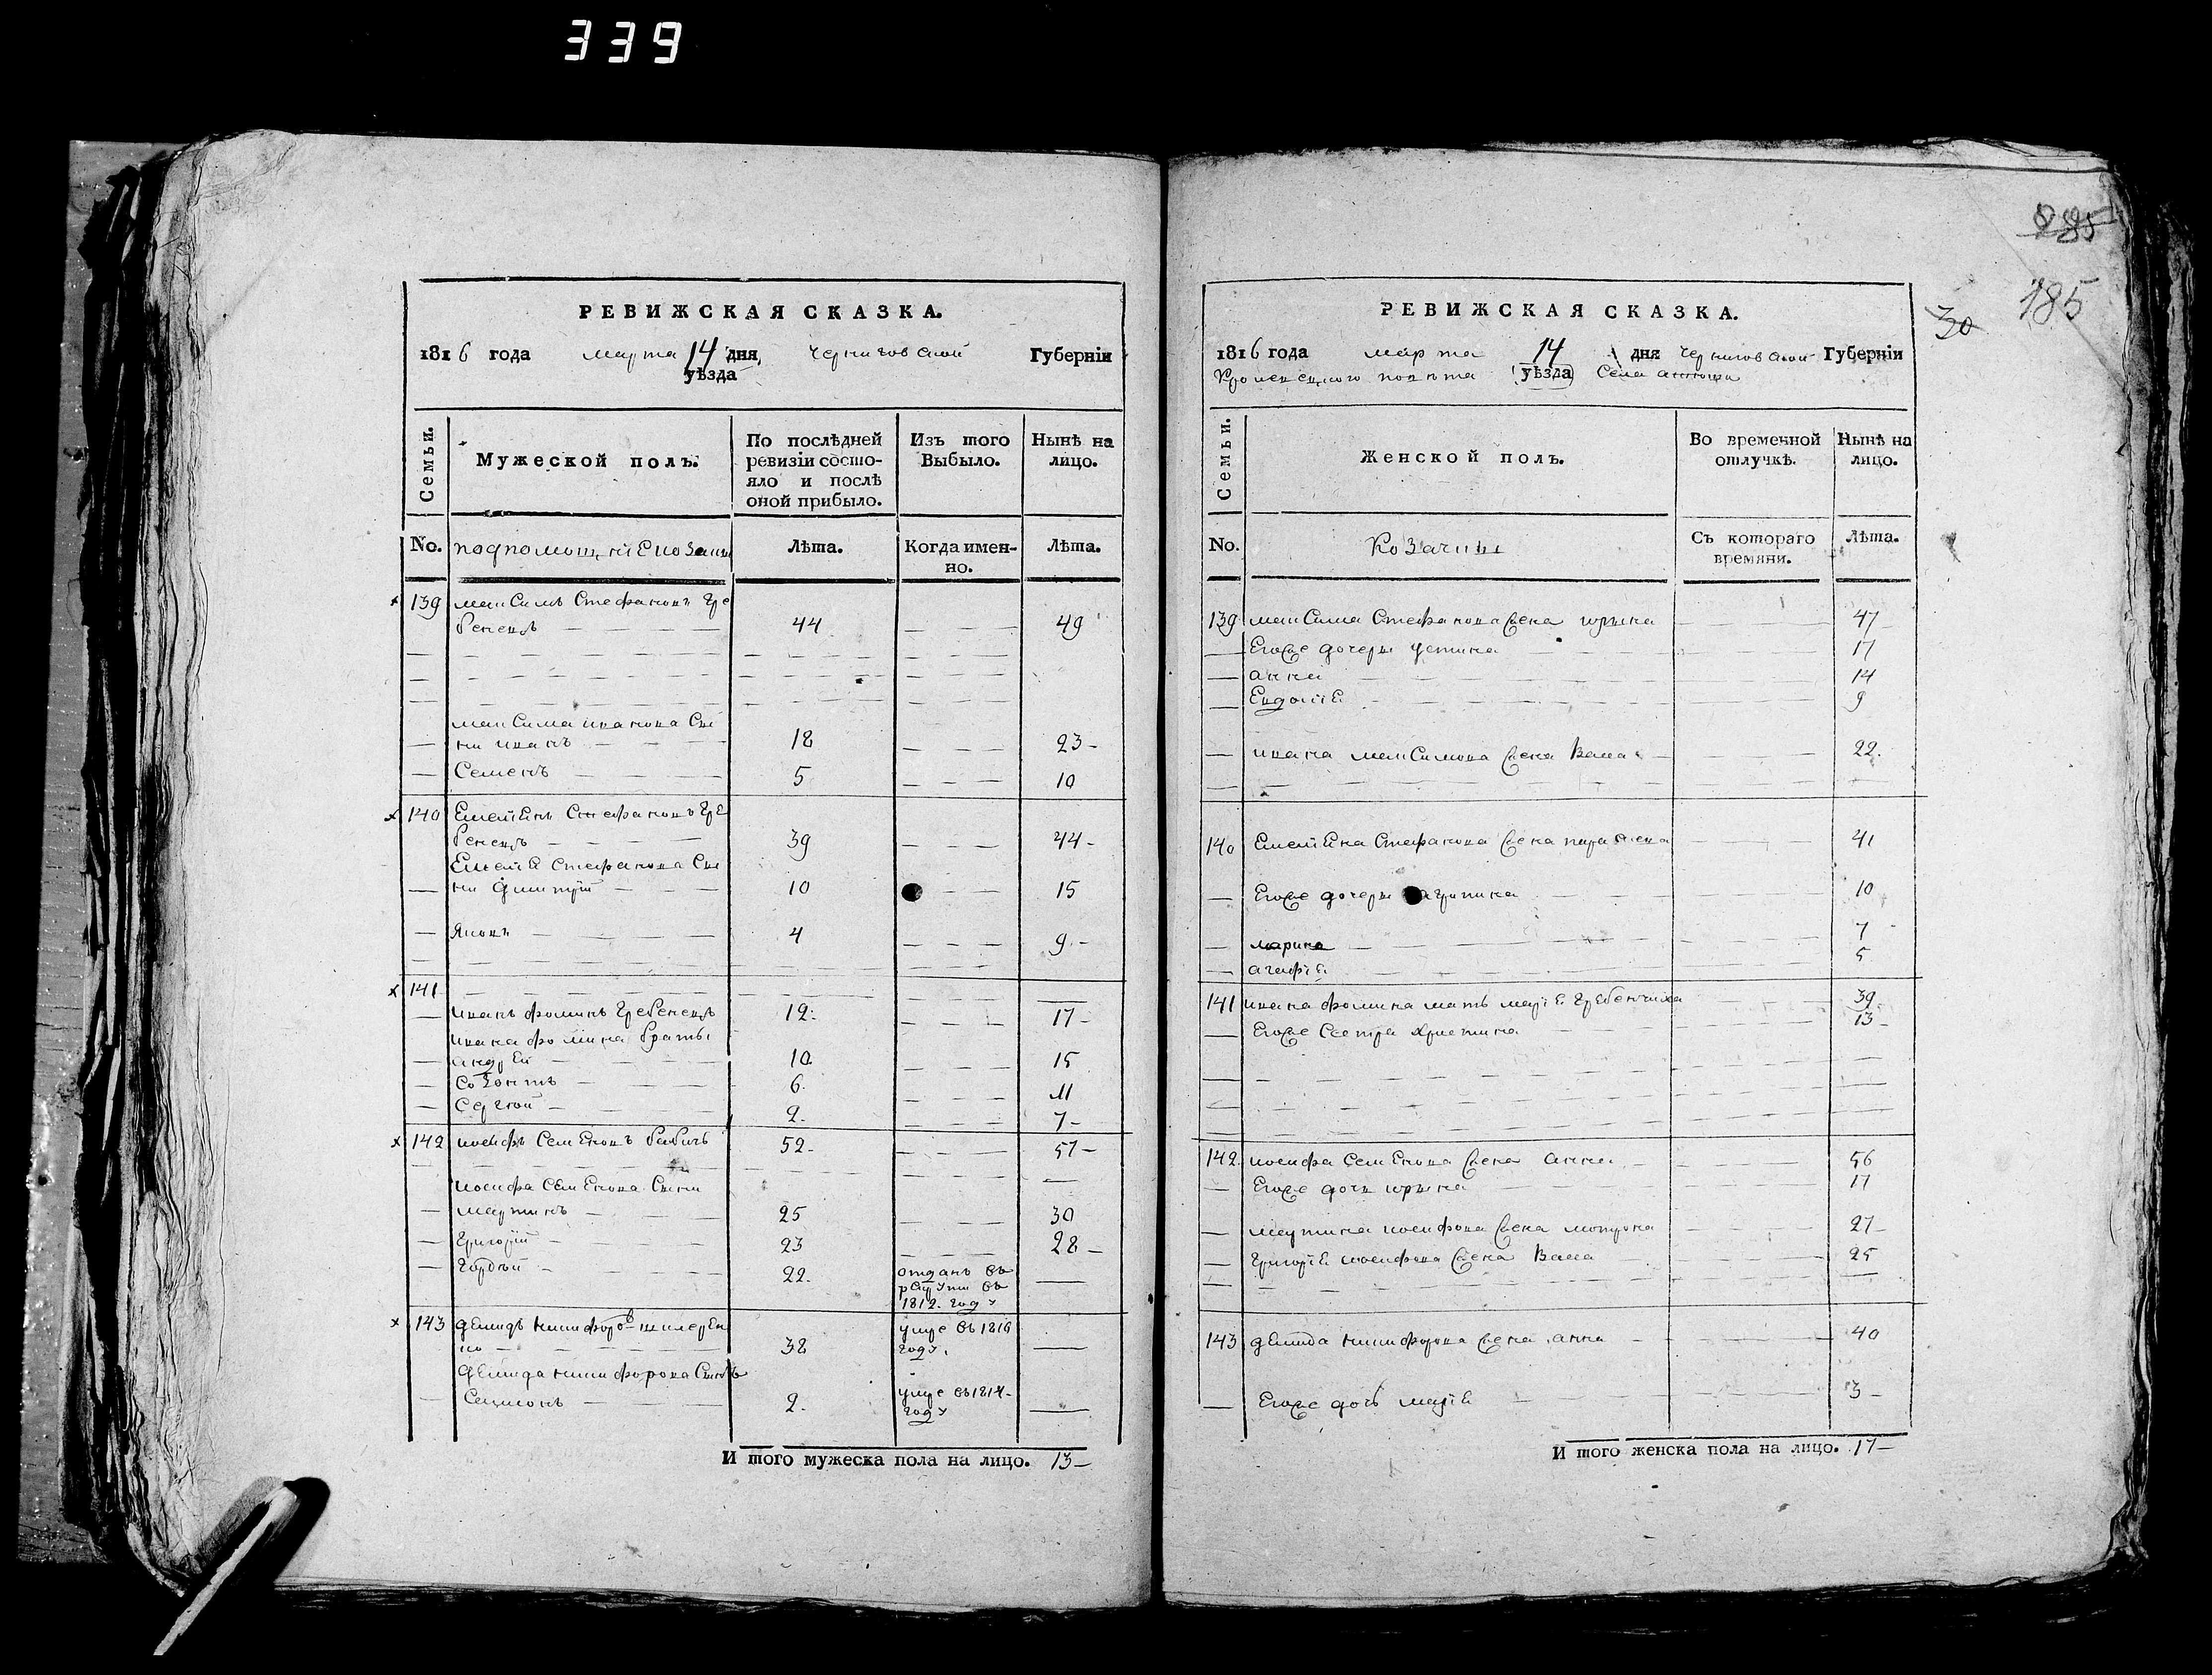 339
285
185
30
РЕВИЖСКАЯ СКАЗКА.
1816 года марта 14 дня Черниговской Губерніи
уѣзда
Семьи.
Мужеской полъ.
По послѣдней ревизіи состо-
яло и послѣ
оной прибыло.
Изъ того
Выбыло.
Нынѣ на
лицо.
No.
Лѣта.
Когда имен-
но.
Лѣта.
139 максимъ Стефановъ Гре
бенецъ 44 49
максима иванова Сы
ни иванъ 18 23
Семенъ 5 10
140 Емеліянъ Стефановъ Гре
бенецъ 39 44
Стефанова Сы
ни Дмитрій 10 15
Яковъ 4 9
141
иванъ фоминъ Гребенецъ 12 17
ивана фомина браты
андрей 10 15
Созонтъ 6 11
Сергѣй 2 7
142 иосифъ Семеновъ бабичъ 52 57
иосифа Семенова Сыни
мартинъ 25 30
Григорій 23 28
Гордѣй 22 отданъ въ
рекруты въ
1812 году
143 Демидъ никифоровъ 38 умре въ 1816
году
Демида никифорова Сынъ
2 умре въ 1814
году
И того мужеска пола на лицо. 13
РЕВИЖСКАЯ СКАЗКА.
1816 года марта 14 дня Черниговской Губерніи
повѣта уѣзда Села
Семьи.
Женской полъ.
Во временной
отлучкѣ.
Нынѣ на
лицо.
No.
Козачки
Съ котораго
времяни.
Лѣта.
139 максима Стефанова жена 47
Егоже дочери устина 17
анна 14
Евдокія 9
ивана максимова жена Васа 22
140 Емеліяна Стефанова жена параскева 41
Егоже дочери агрипина 10
марина 7
агафія 5
141 ивана фомина мать марія Гребенчиха 39
Егоже Сестра Христина 13
142 иосифа Семенова жена анна 56
Егоже дочь 17
мартина иосифова жена мотрона 27
Григорія иосифова жена Васа 25
143 Демида никифорова жена анна 40
Егоже дочь марія 3
И того женска пола на лицо. 17